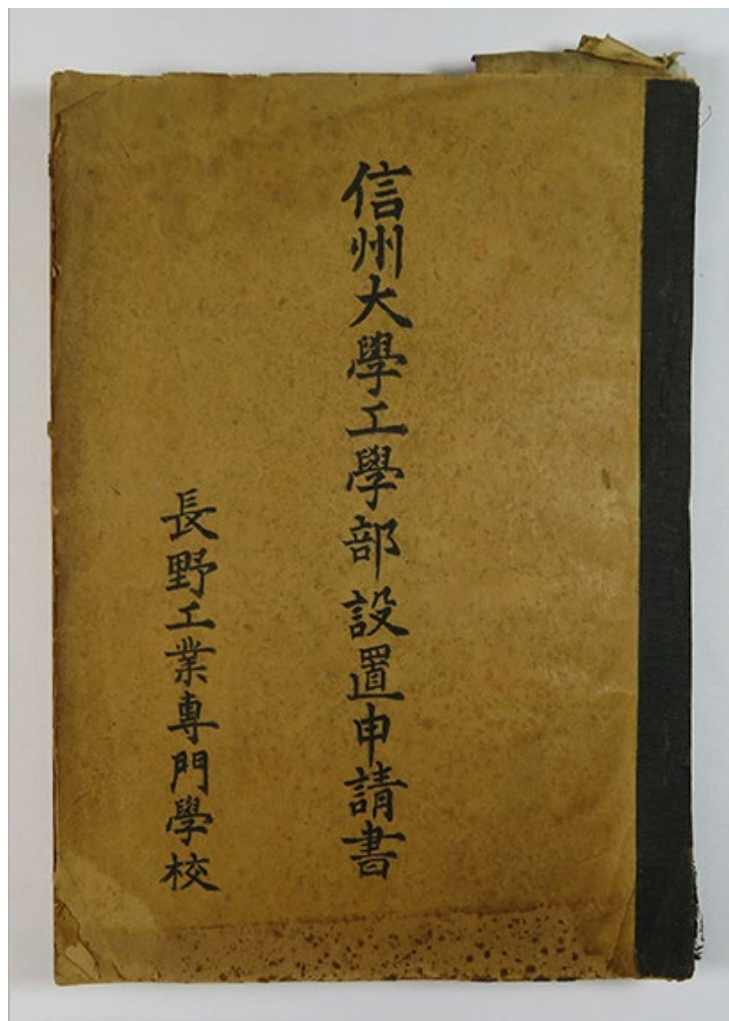 信州大學工學部設置申請書
長野工業專門學校